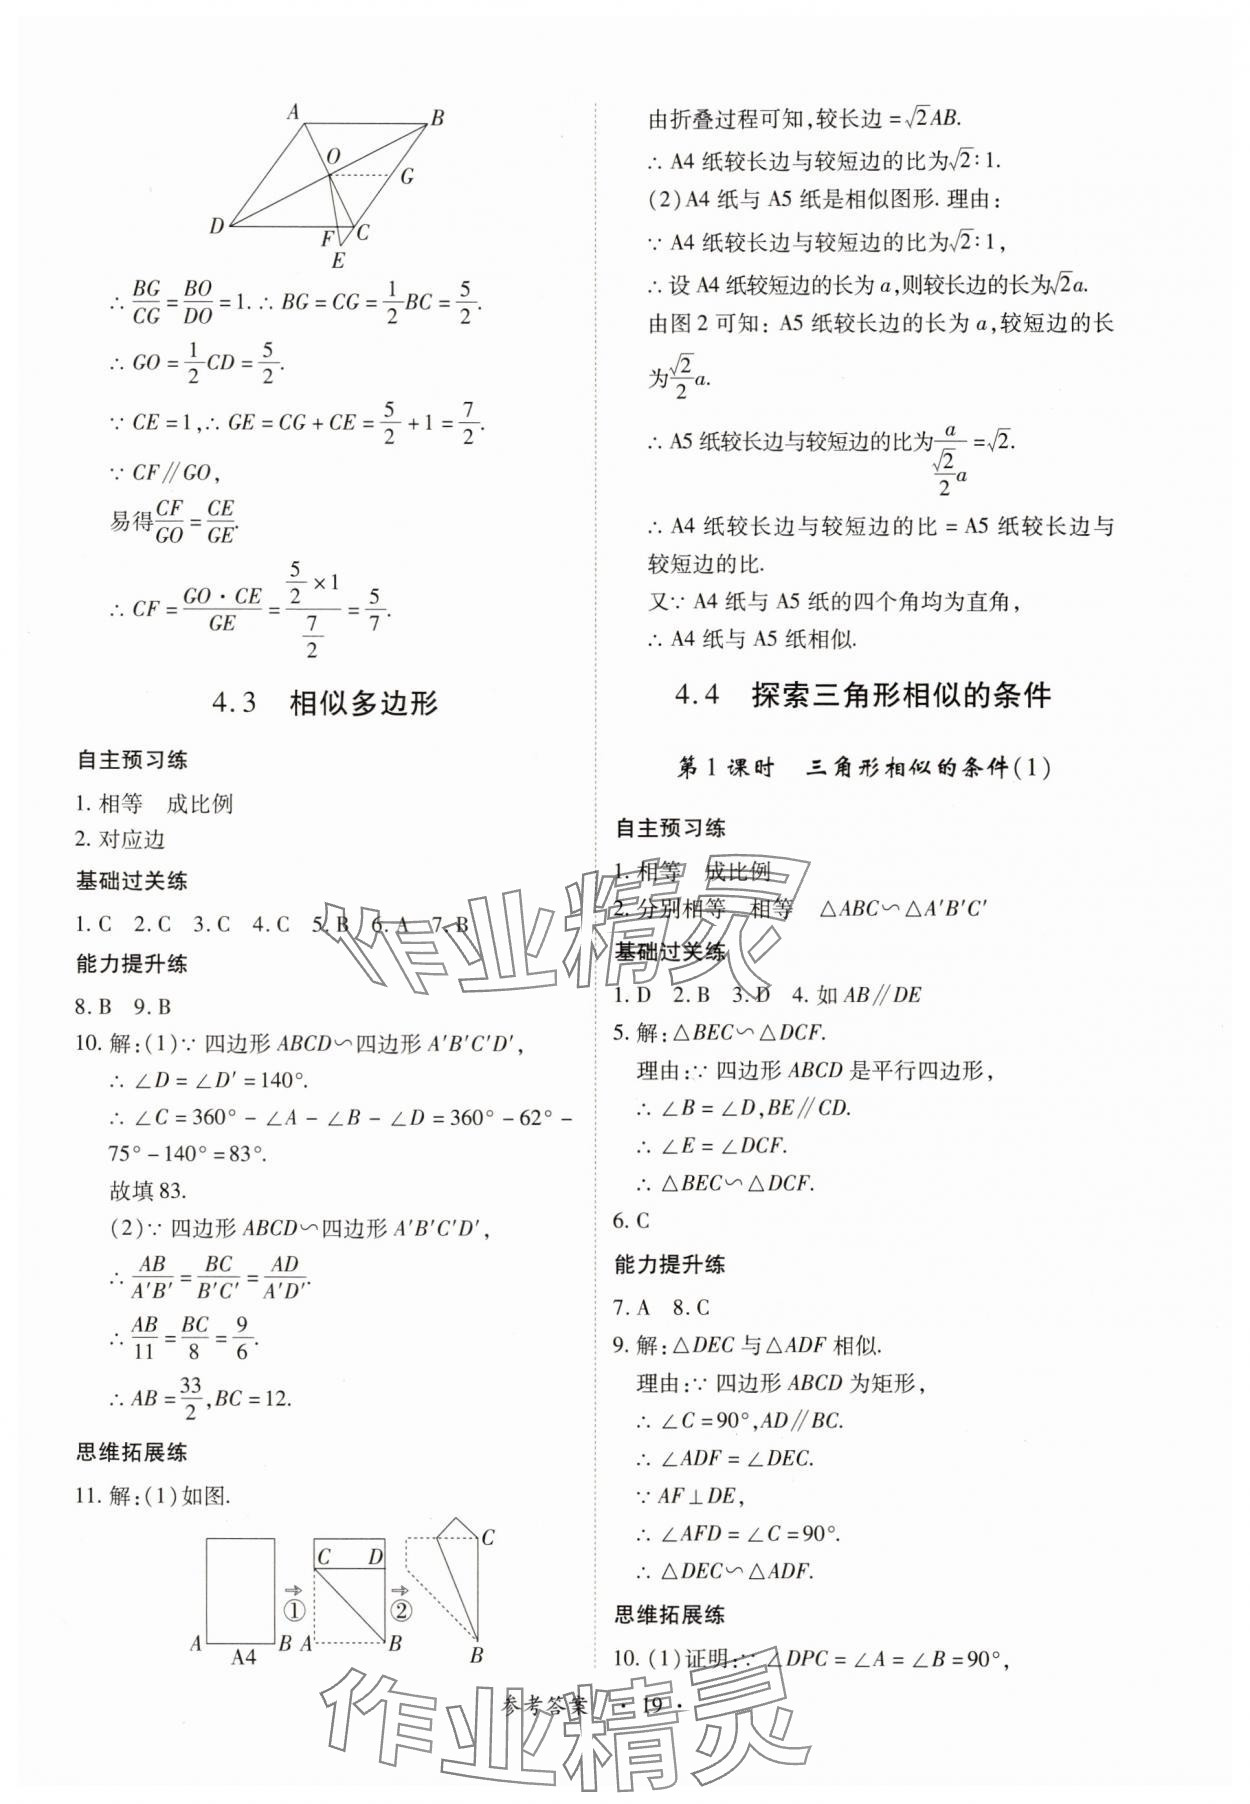 A
B
O
G
D
F
C
E
∴ BG/CG = BO/DO = 1. ∴ BG = CG = 1/2 BC = 5/2.
∴ GO = 1/2 CD = 5/2.
∵ CE = 1, ∴ GE = CG + CE = 5/2 + 1 = 7/2.
∵ CF∥GO,
易得 CF/GO = CE/GE.
∴ CF = GO·CE/GE = (5/2 × 1)/(7/2) = 5/7.
4.3 相似多边形
自主预习练
1. 相等 成比例
2. 对应边
基础过关练
1. C 2. C 3. C 4. C 5. B 6. A 7. B
能力提升练
8. B 9. B
10. 解:(1)∵ 四边形 ABCD∽四边形 A′B′C′D′,
∴ ∠D = ∠D′ = 140°.
∴ ∠C = 360° − ∠A − ∠B − ∠D = 360° − 62° −
75° − 140° = 83°.
故填 83.
(2)∵ 四边形 ABCD∽四边形 A′B′C′D′,
∴ AB/A′B′ = BC/B′C′ = AD/A′D′.
∴ AB/11 = BC/8 = 9/6.
∴ AB = 33/2, BC = 12.
思维拓展练
11. 解:(1)如图.
C D C
① ②
A B A B
A4 B
由折叠过程可知,较长边 = √2AB.
∴ A4 纸较长边与较短边的比为√2∶1.
(2)A4 纸与 A5 纸是相似图形. 理由:
∵ A4 纸较长边与较短边的比为√2∶1,
∴ 设 A4 纸较短边的长为 a,则较长边的长为√2a.
由图 2 可知: A5 纸较长边的长为 a,较短边的长
为 √2/2 a.
∴ A5 纸较长边与较短边的比为 a/(√2/2 a) = √2.
∴ A4 纸较长边与较短边的比 = A5 纸较长边与
较短边的比.
又∵ A4 纸与 A5 纸的四个角均为直角,
∴ A4 纸与 A5 纸相似.
4.4 探索三角形相似的条件
第 1 课时 三角形相似的条件(1)
自主预习练
1. 相等 成比例
2. 分别相等 相等 △ABC∽△A′B′C′
基础过关练
1. D 2. B 3. D 4. 如 AB∥DE
5. 解:△BEC∽△DCF.
理由:∵ 四边形 ABCD 是平行四边形,
∴ ∠B = ∠D, BE∥CD.
∴ ∠E = ∠DCF.
∴ △BEC∽△DCF.
6. C
能力提升练
7. A 8. C
9. 解:△DEC 与△ADF 相似.
理由:∵ 四边形 ABCD 为矩形,
∴ ∠C = 90°, AD∥BC.
∴ ∠ADF = ∠DEC.
∵ AF⊥DE,
∴ ∠AFD = ∠C = 90°.
∴ △DEC∽△ADF.
思维拓展练
10. (1)证明:∵ ∠DPC = ∠A = ∠B = 90°,
参考答案 · 19 ·
作业精灵
作业精灵